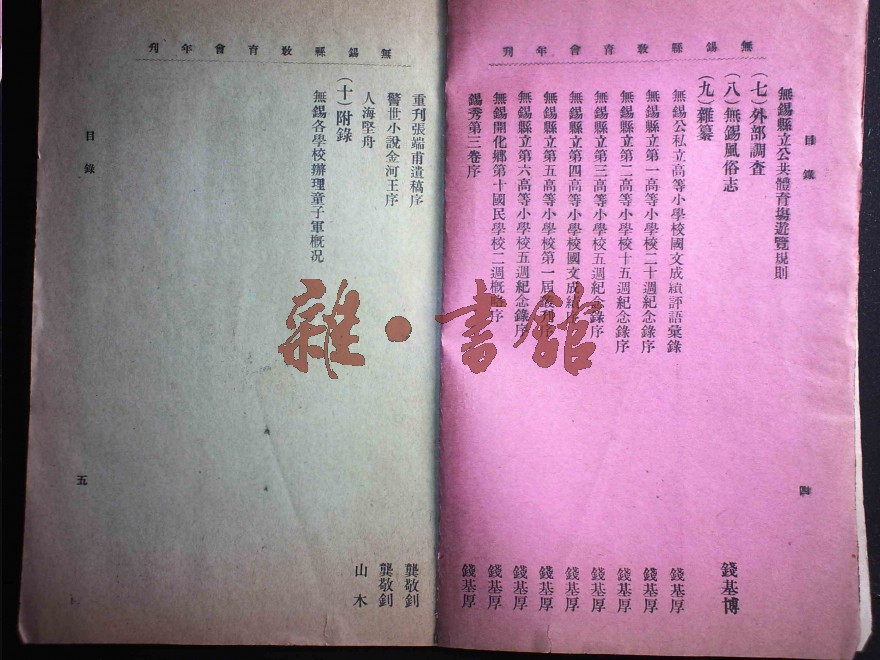 無錫縣教育會年刊
目錄
無錫縣立公共體育塲遊覽規則
（七）外部調查
（八）無錫風俗志 錢基博
（九）雜纂
無錫公私立高等小學校國文成績評語彙錄 錢基厚
無錫縣立第一高等小學校二十週紀念錄序 錢基厚
無錫縣立第二高等小學校十五週紀念錄序 錢基厚
無錫縣立第三高等小學校五週紀念錄序 錢基厚
無錫縣立第四高等小學校國文成績序 錢基厚
無錫縣立第五高等小學校第一屆刊序 錢基厚
無錫縣立第六高等小學校五週紀念錄序 錢基厚
無錫開化鄉第十國民學校二週概略序 錢基厚
錫秀第三卷序 錢基厚
四
無錫縣教育會年刊
重刋張端甫遺稿序 龔敬釗
警世小說金河王序 龔敬釗
人海堅舟 山木
（十）附錄
無錫各學校辦理童子軍概况
目錄
五
雜·書館